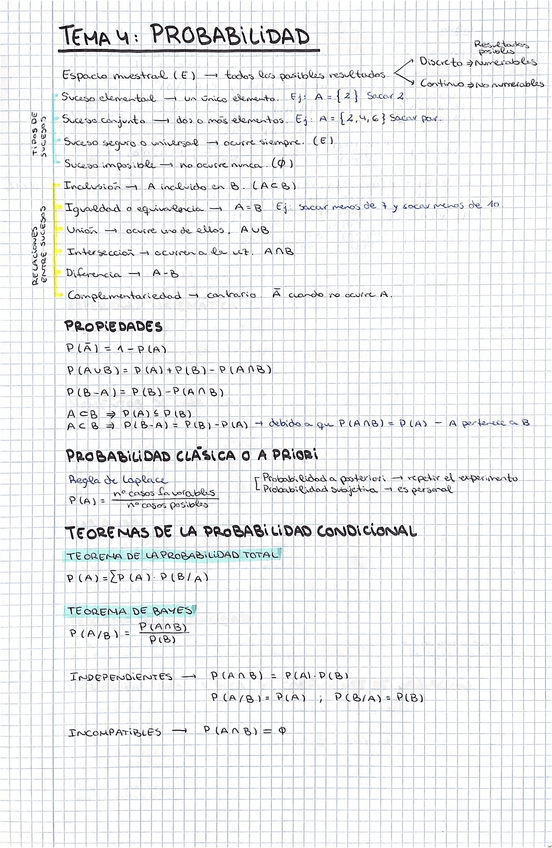 TEMA 4: PROBABILIDAD
Resultados posibles
Espacio muestral (E) → todos los posibles resultados
Discreto ⇒ Numerables
Continuo ⇒ No numerables
TIPOS DE SUCESOS
Suceso elemental → un único elemento. Ej: A = {2} Sacar 2
Suceso conjunto → dos o más elementos. Ej: A = {2,4,6} Sacar par.
Suceso seguro o universal → ocurre siempre. (E)
Suceso imposible → no ocurre nunca. (∅)
RELACIONES ENTRE SUCESOS
Inclusión → A incluido en B. (A⊂B)
Igualdad o equivalencia → A=B Ej. sacar menos de 7 y sacar menos de 10
Unión → ocurre uno de ellos. A∪B
Intersección → ocurren a la vez. A∩B
Diferencia → A-B
Complementariedad → contrario Ā cuando no ocurre A.
PROPIEDADES
P(Ā) = 1 - P(A)
P(A∪B) = P(A) + P(B) - P(A∩B)
P(B-A) = P(B) - P(A∩B)
A⊂B ⇒ P(A) ≤ P(B)
A⊂B ⇒ P(B-A) = P(B) - P(A) → debido a que P(A∩B) = P(A) - A pertenece a B
PROBABILIDAD CLÁSICA O A PRIORI
Regla de Laplace
P(A) = nº casos favorables / nº casos posibles
Probabilidad a posteriori → repetir el experimento
Probabilidad subjetiva → es personal
TEOREMAS DE LA PROBABILIDAD CONDICIONAL
TEOREMA DE LA PROBABILIDAD TOTAL
P(A) = ∑P(A) · P(B/A)
TEOREMA DE BAYES
P(A/B) = P(A∩B) / P(B)
INDEPENDIENTES → P(A∩B) = P(A) · P(B)
P(A/B) = P(A) ; P(B/A) = P(B)
INCOMPATIBLES → P(A∩B) = ∅